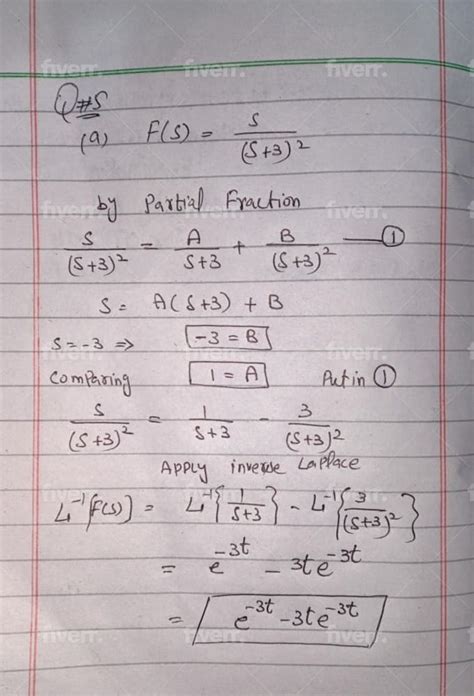 Q#5
(a) F(S) = S / (S+3)²
by Partial Fraction
S / (S+3)² = A / S+3 + B / (S+3)² — ①
S = A(S+3) + B
S = -3 ⇒ -3 = B
Comparing 1 = A Put in ①
S / (S+3)² = 1 / S+3 - 3 / (S+3)²
Apply inverse Laplace
L⁻¹{F(S)} = L⁻¹{1 / S+3} - L⁻¹{3 / (S+3)²}
= e^-3t - 3te^-3t
= e^-3t - 3te^-3t
fiverr.